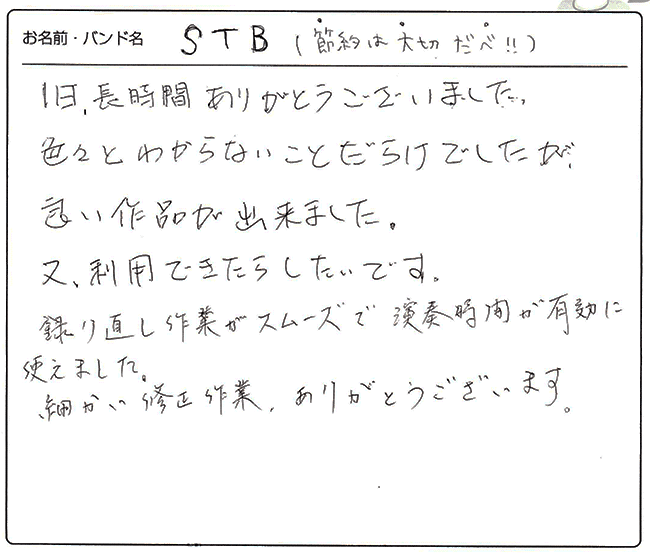 お名前・バンド名 STB (節約は大切だべ!!)
1日、長時間ありがとうございました。
色々とわからないことだらけでしたが、
良い作品が出来ました。
又、利用できたらしたいです。
録り直し作業がスムーズで演奏時間が有効に
使えました。
細かい修正作業、ありがとうございます。